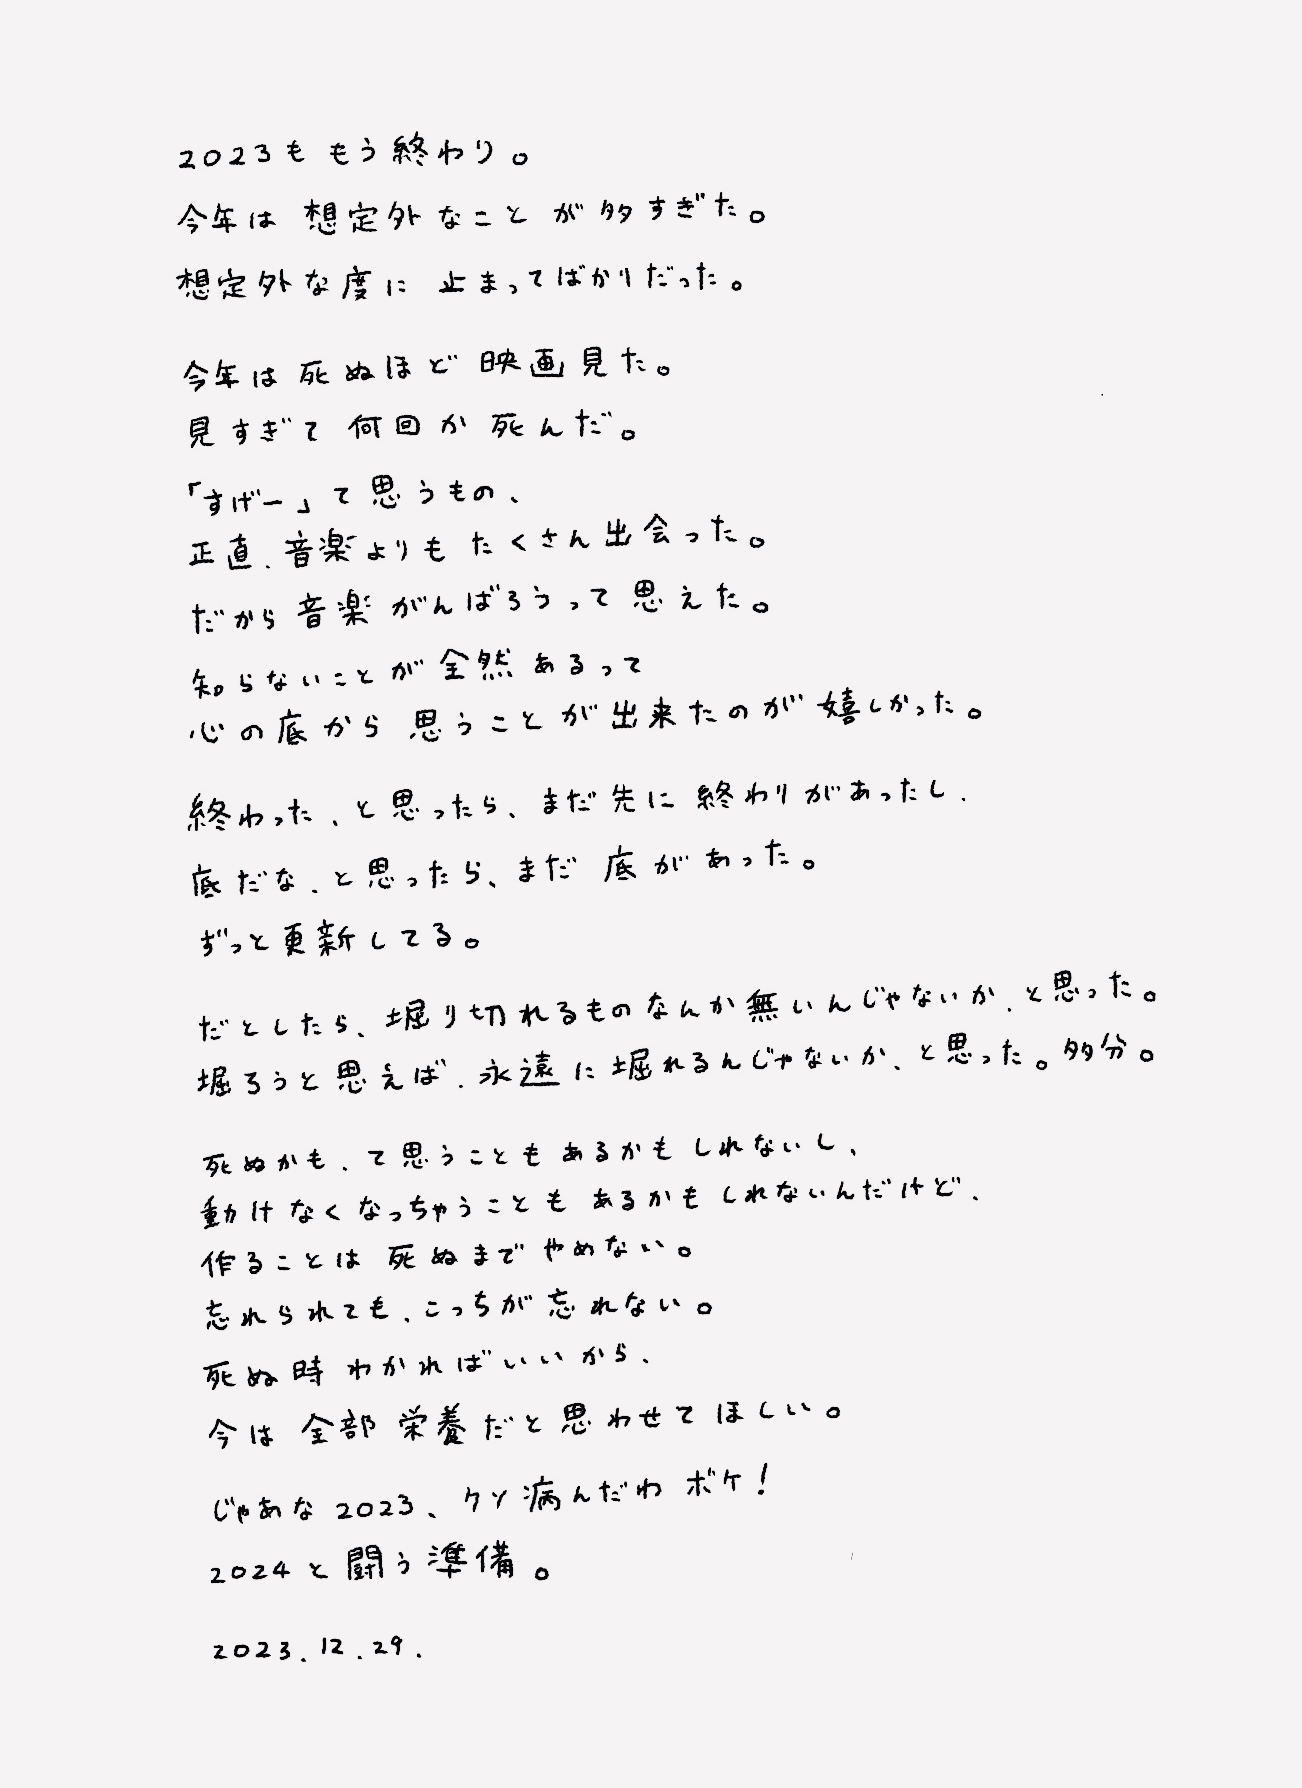 2023ももう終わり。
今年は想定外なことが多すぎた。
想定外な度に止まってばかりだった。
今年は死ぬほど映画見た。
見すぎて何回か死んだ。
「すげー」て思うもの、
正直、音楽よりもたくさん出会った。
だから音楽がんばろうって思えた。
知らないことが全然あるって
心の底から思うことが出来たのが嬉しかった。
終わった、と思ったら、まだ先に終わりがあったし、
底だな、と思ったら、まだ底があった。
ずっと更新してる。
だとしたら、堀り切れるものなんか無いんじゃないか、と思った。
堀ろうと思えば、永遠に堀れるんじゃないか、と思った。多分。
死ぬかも、て思うこともあるかもしれないし、
動けなくなっちゃうこともあるかもしれないんだけど、
作ることは死ぬまでやめない。
忘れられても、こっちが忘れない。
死ぬ時わかればいいから、
今は全部栄養だと思わせてほしい。
じゃあな2023、クソ病んだわボケ!
2024と闘う準備。
2023.12.29.